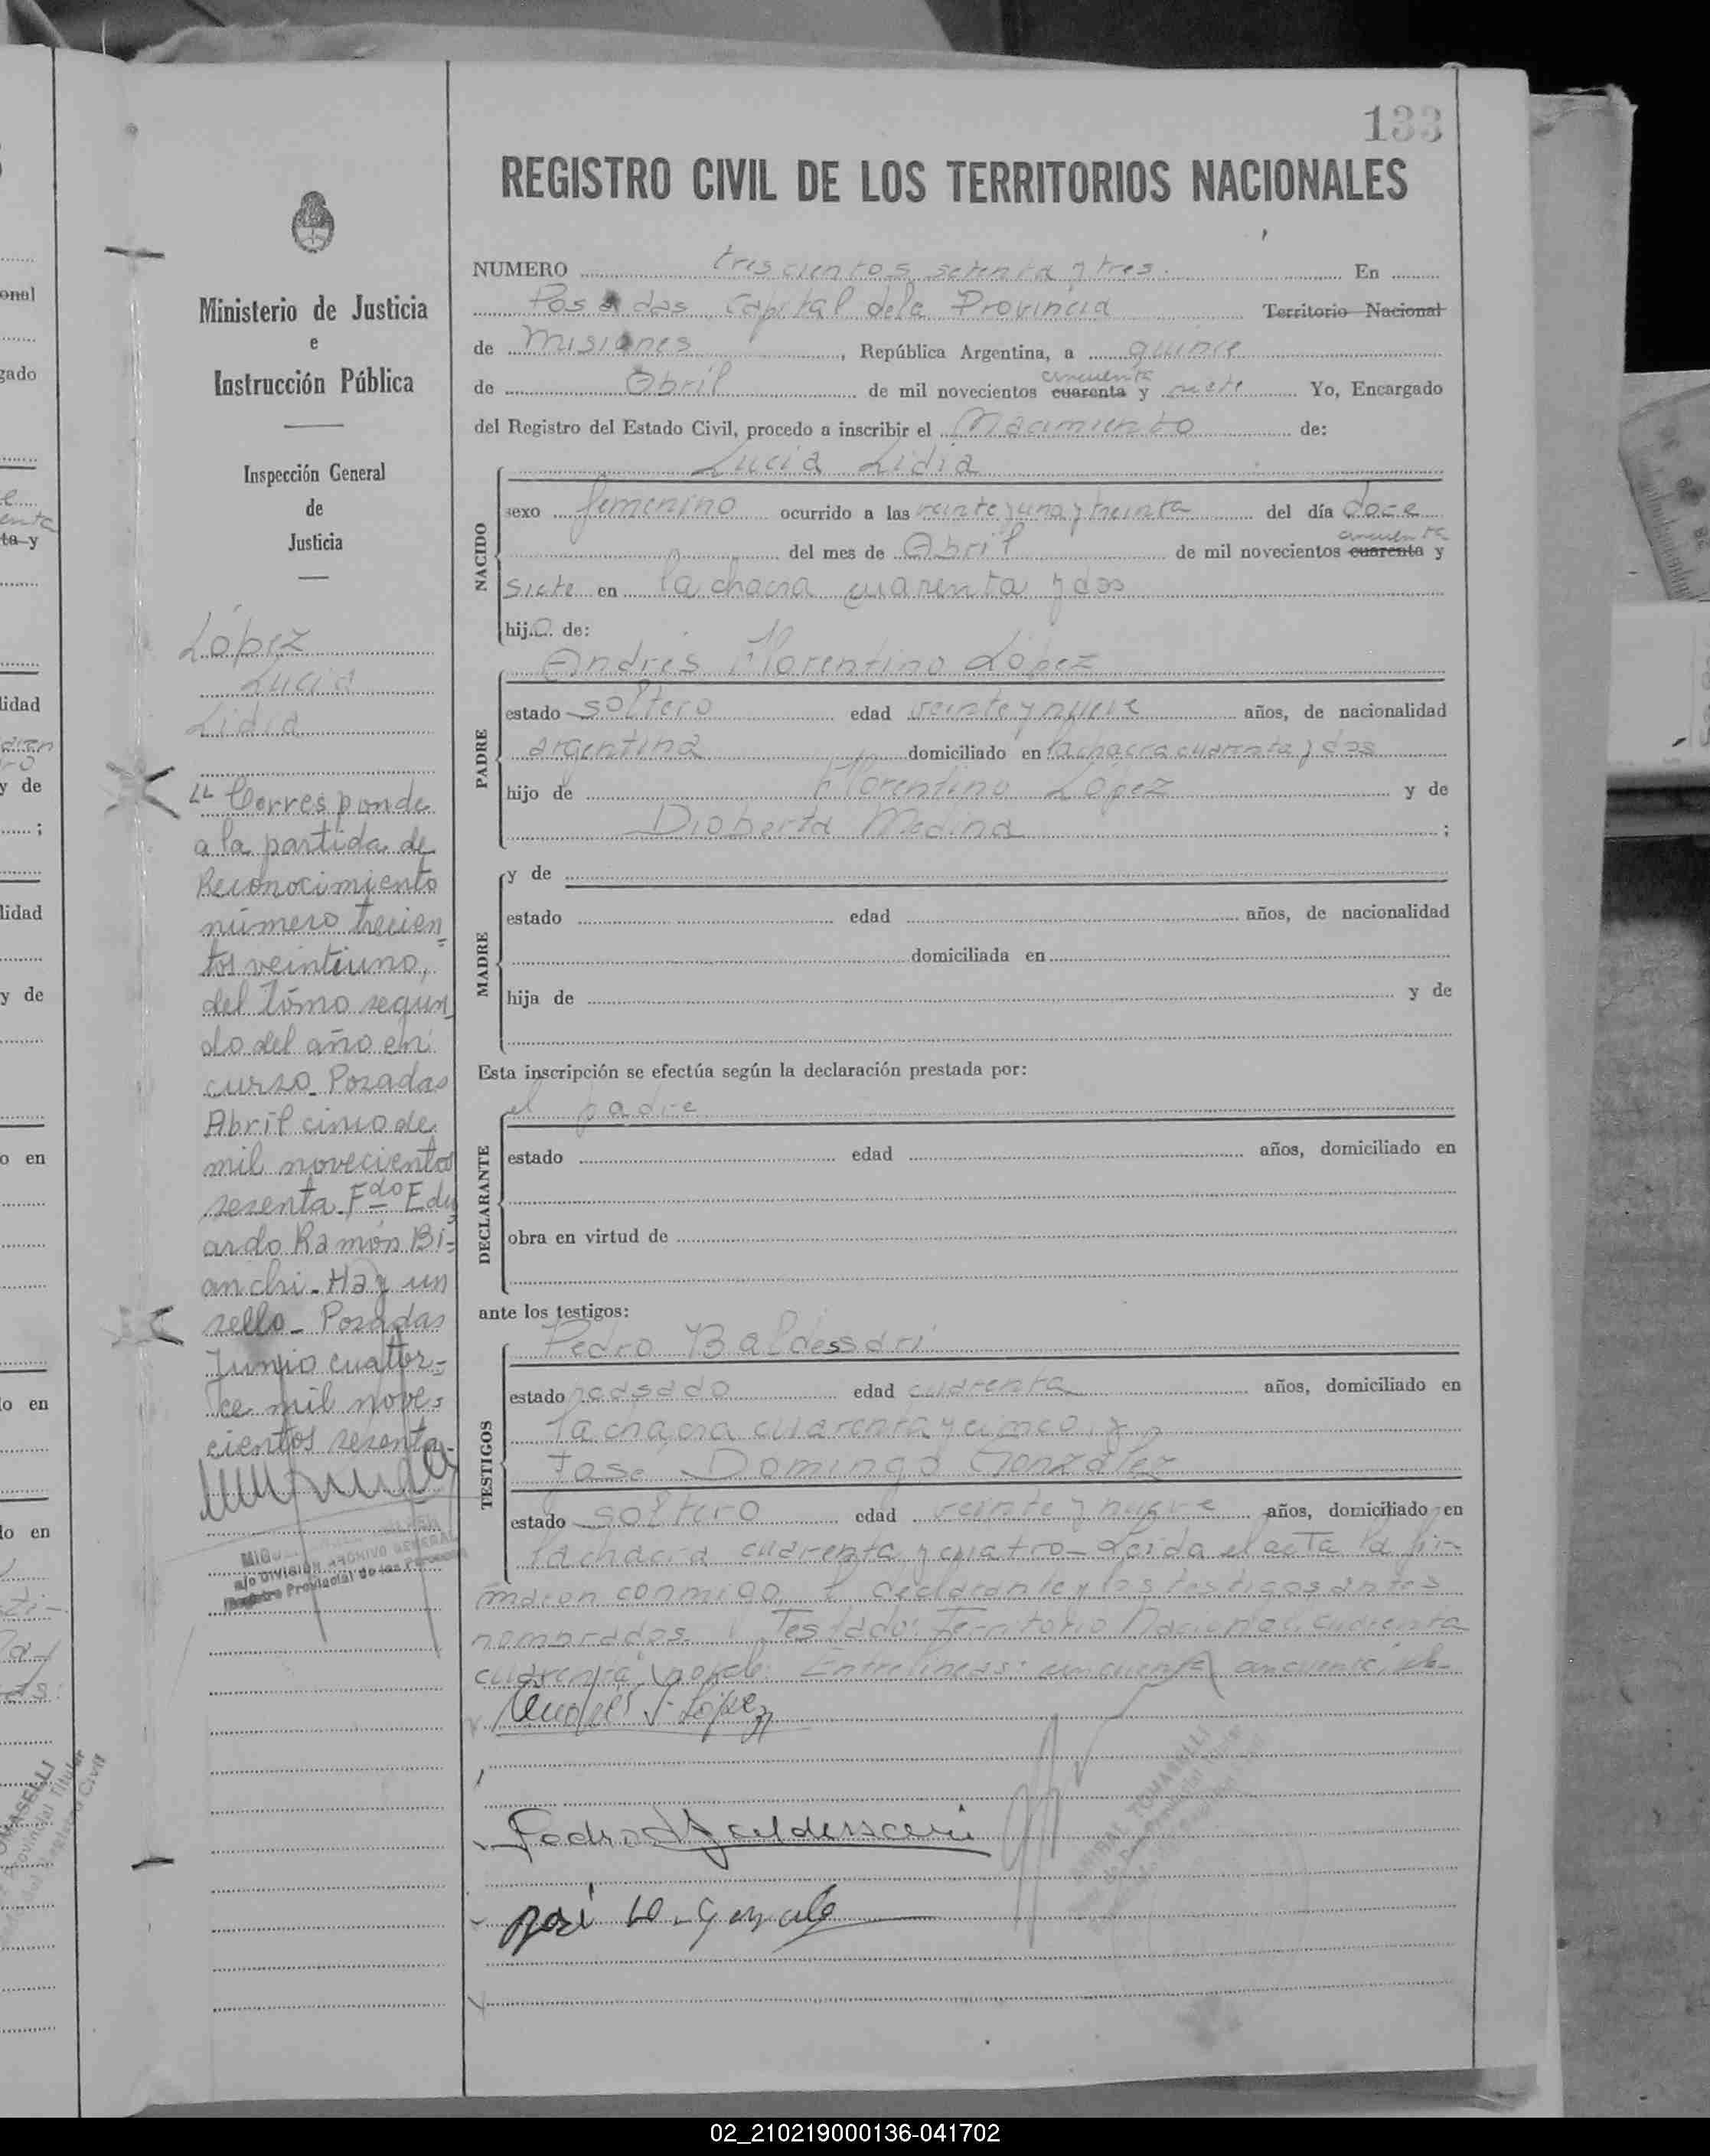 133
REGISTRO CIVIL DE LOS TERRITORIOS NACIONALES
NUMERO trescientos setenta y tres. En
Posadas Capital de la Provincia Territorio Nacional
de Misiones, República Argentina, a quince
de Abril de mil novecientos cincuenta cuarenta y siete Yo, Encargado
del Registro del Estado Civil, procedo a inscribir el Nacimiento de:
Ministerio de Justicia
e
Instrucción Pública
Inspección General
de
Justicia
López
Lucia
Lidia
" Corresponde
a la partida de
Reconocimiento
número trecien
tos veintiuno,
del tómo segun
do del año en
curso_ Posadas
Abril cinco de
mil novecientos
sesenta. Fdo Edu
ardo Ramón Bi-
anchi_ Hay un
sello_ Posadas
Junio cuator-
ce mil nove-
cientos sesenta_
a/c DIVISION ARCHIVO GENERAL
Registro Provincial de las Personas
NACIDO
Lucia Lidia
sexo femenino ocurrido a las veinte y una y treinta del día doce
del mes de Abril de mil novecientos cincuenta cuarenta y
siete en la chacra cuarenta y dos
hija de:
PADRE
Andrés Florentino López
estado soltero edad veinte y nueve años, de nacionalidad
argentina domiciliado en la chacra cuarenta y dos
hijo de Florentino López y de
Dioberta Medina ;
MADRE
y de
estado edad años, de nacionalidad
domiciliada en
hija de y de
Esta inscripción se efectúa según la declaración prestada por:
DECLARANTE
el padre
estado edad años, domiciliado en
obra en virtud de
ante los testigos:
TESTIGOS
Pedro Baldessari
estado casado edad cuarenta años, domiciliado en
la chacra cuarenta y cinco y
José Domingo González
estado soltero edad veinte y nueve años, domiciliado en
la chacra cuarenta y cuatro_ Leida el acta la fir-
maron conmigo, el declarante y los testigos antes
nombrados. Testado: Territorio Nacional, cuarenta
cuarenta: no vale. Entrelíneas: cincuenta cincuenta, vale_
Andrés F. López
Pedro Baldessari
José D. Gonzalez
ANIBAL TOMASELLI
02_210219000136-041702